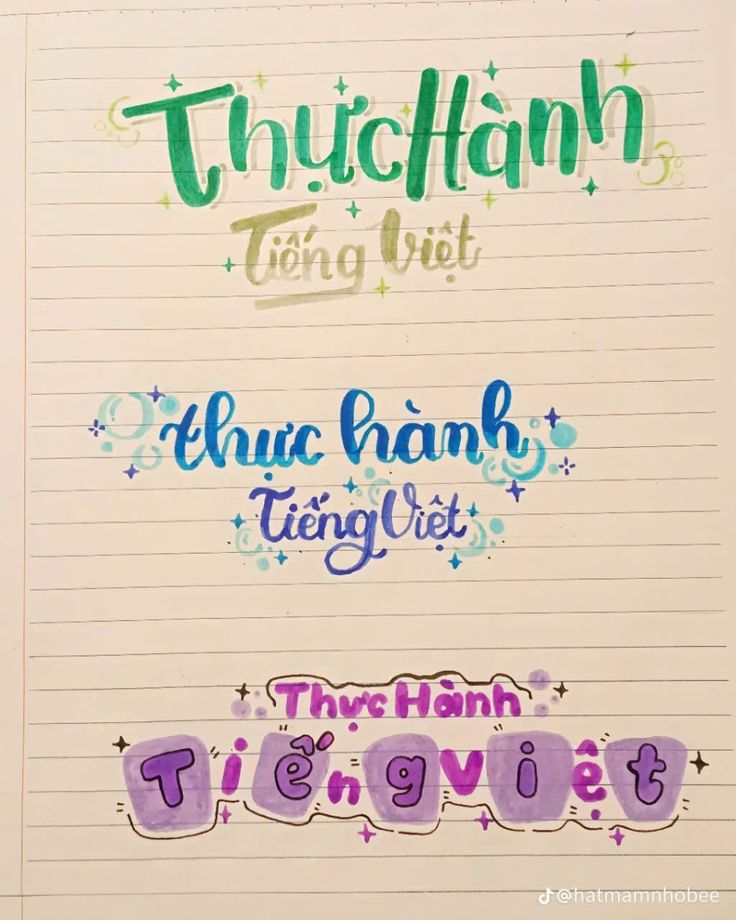 Thực Hành
Tiếng Việt
thực hành
Tiếng Việt
Thực Hành
Tiếng việt
@hatmamnhobee